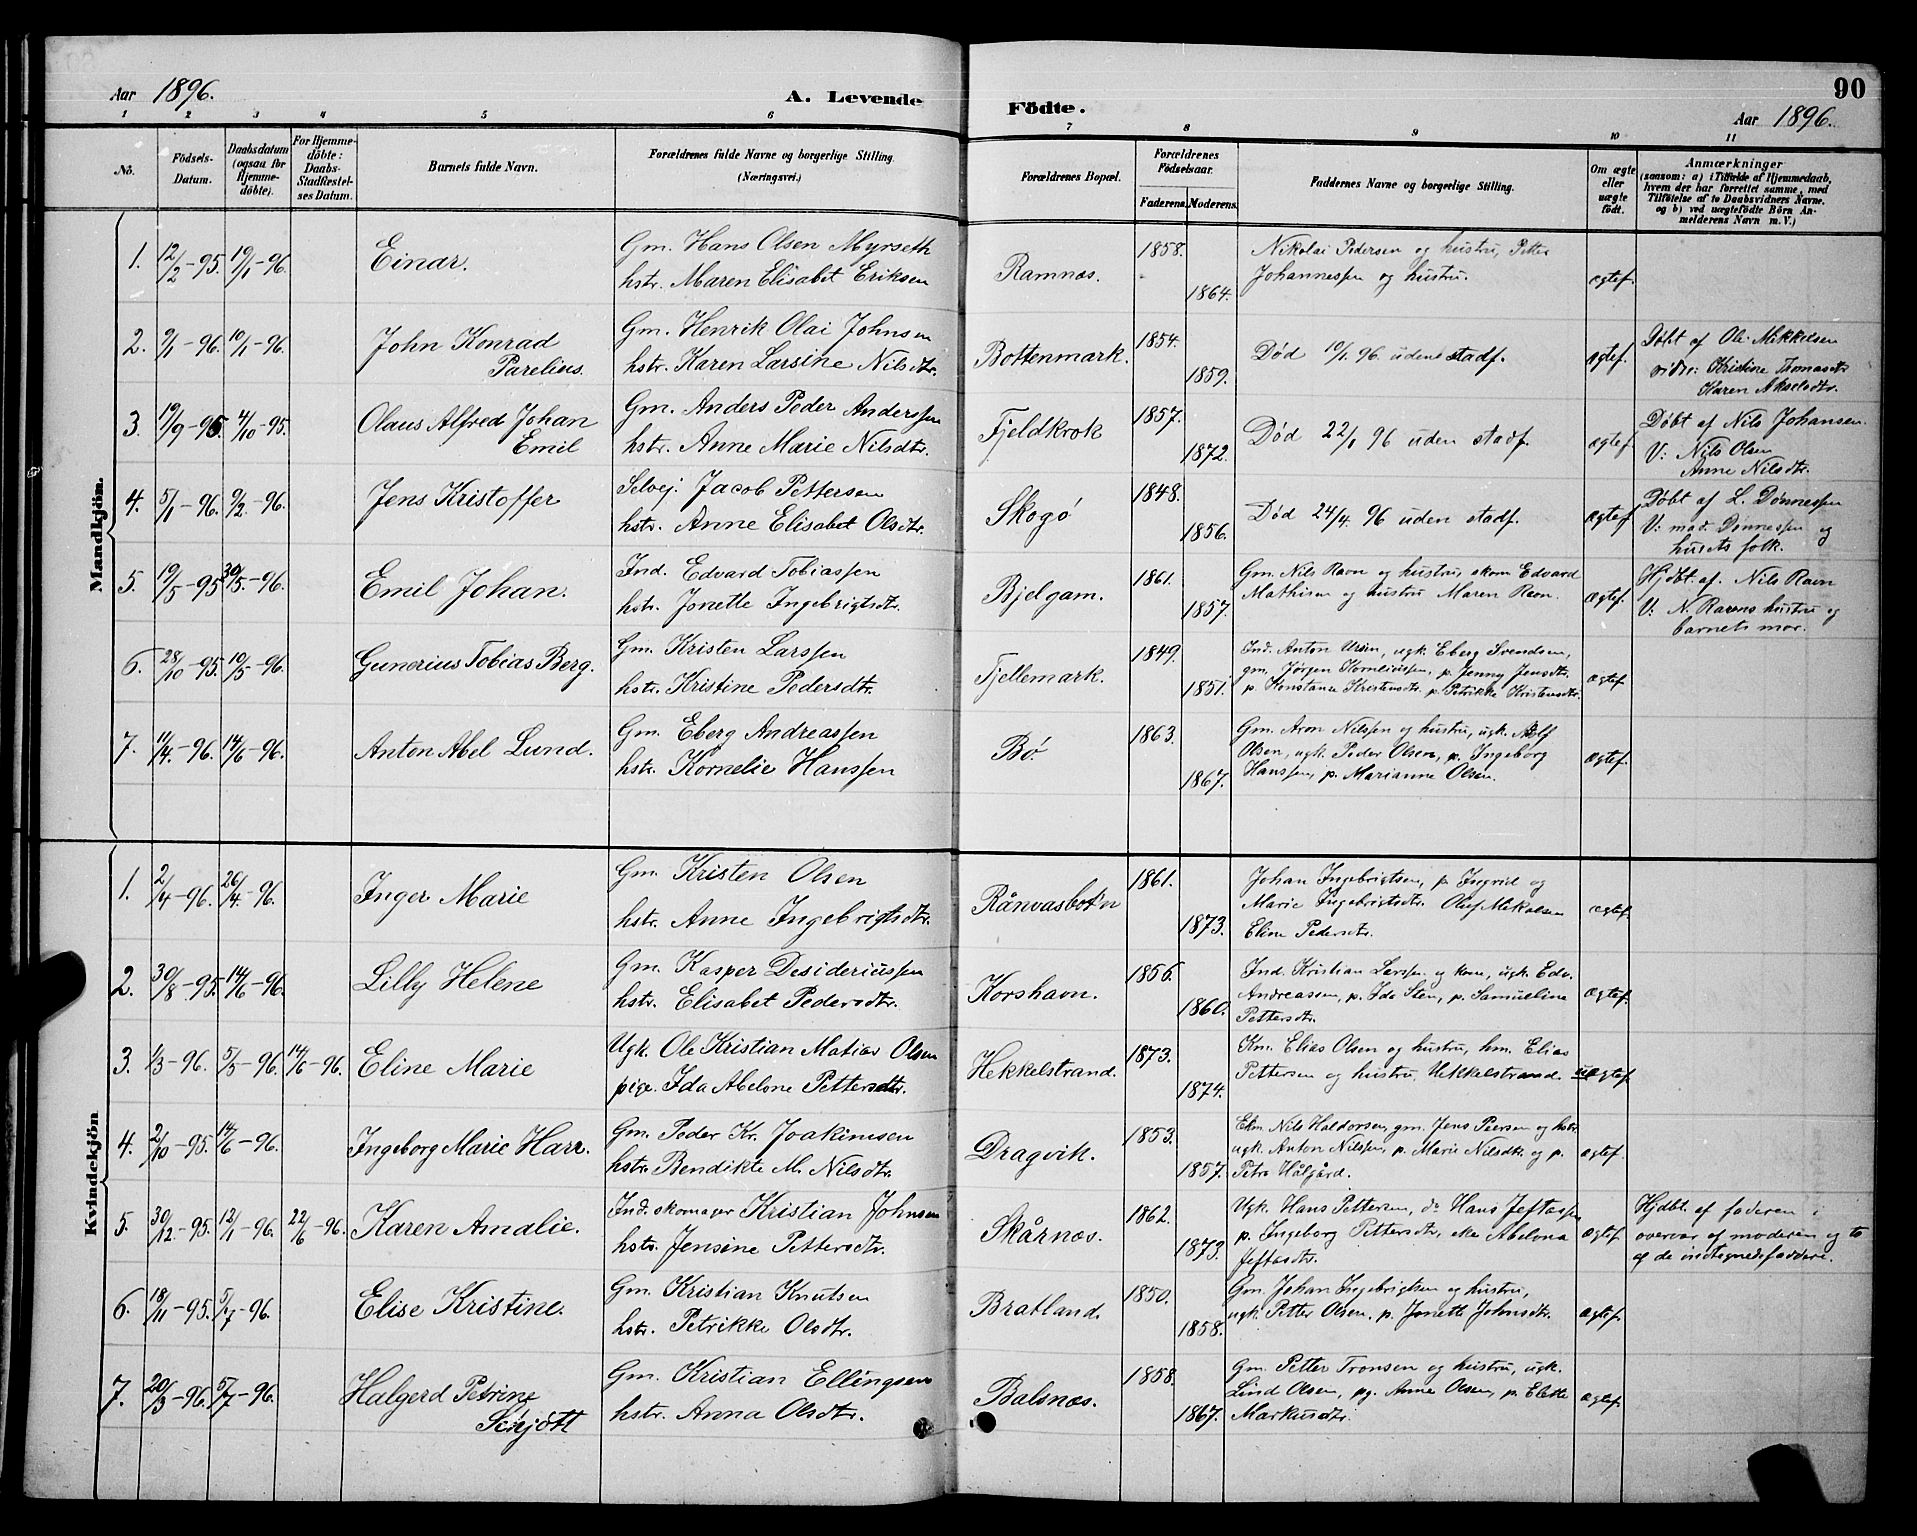 90
Aar 1896. A. Levende Födte. Aar 1896.
1 2 3 4 5 6 7 8 9 10 11
No. Födsels-Datum. Daabsdatum (ogsaa for Hjemmedöbte). For Hjemmedöbte: Daabs-Stadfestelses Datum. Barnets fulde Navn. Forældrenes fulde Navne og borgerlige Stilling. (Næringsvei.) Forældrenes Bopæl. Forældrenes Födselsaar. Faderens. Moderens. Faddernes Navne og borgerlige Stilling. Om ægte eller uægte födt. Anmærkninger (saasom: a) i Tilfælde af Hjemmedaab, hvem der har forrettet samme, med Tilföielse af to Daabsvidners Navne. og b) ved uægtefödte Börn Anmelderens Navn m. V.)
Mandkjön.
1. 12/2-95. 19/1-96. Einar. Gm. Hans Olsen Myrseth
hstr. Maren Elisabet Eriksen Ramnæs. 1858. 1864. Nikolai Pedersen og hustru, Petter
Johannessen og hustru. ægtef.
2. 9/1-96. 10/1-96. John Konrad
Parelius. Gm. Henrik Olai Johnsen
hstr. Karen Larsine Nilsdtr. Bottenmark. 1854. 1859. Død 10/1 96 uden stadf. ægtef. Døbt af Ole Mikkelsen
vidne: Kristine Thomasdtr
Karen Akseldtr.
3. 19/9-95. 4/10-95. Olaus Alfred Johan
Emil Gm. Anders Peder Anderssen
hstr. Anne Marie Nilsdtr. Fjeldkrok 1857. 1872. Død 22/1 96 uden stadf. ægtef. Døbt af Nils Johansen.
V: Nils Olsen
Anne Nilsdtr.
4. 5/1-96. 9/2-96. Jens Kristoffer Selvej. Jacob Pettersen
hstr. Anne Elisabet Olsdtr. Skogø 1848. 1856. Død 24/4. 96 uden stadf. ægtef Døbt af L. Dønnessen
V: mad. Dønnessen og
husets folk.
5. 19/5-95 30/5-96. Emil Johan. Ind. Edvard Tobiassen
hstr. Jonette Ingebrigtsdtr. Bjelgam. 1861. 1857. Gm. Nils Ravn og hustru, skom Edvard
Mathisen og hustru Maren Ravn. ægtef. Hjdbt. af. Nils Ravn
V: N. Ravns hustru og
barnets mor.
6. 28/10-95. 10/5-96. Gunerius Tobias Berg. Gm. Kristen Larssen
hstr. Kristine Pedersdtr. Fjellemark. 1849. 1851. Ind. Anton Ursin, ugk. Eberg Svendsen,
gm. Jørgen Korneliussen, p. Jenny Jensdtr.
p. Konstance Kristensdtr. p. Petrikke Kristensdtr. ægtef
7. 11/4-96. 14/6-96. Anton Abel Lund. Gm. Eberg Andreassen
hstr. Kornelie Hanssen Bø. 1863. 1867. Gm. Aron Nilssen og hustru, ugk. Adolf
Olsen, ugk. Peder Olsen, p. Ingeborg
Hanssen, p. Marianne Olsen. ægtef.
Kvindekjön
1. 2/4-96. 26/4-96. Inger Marie Gm. Kristen Olsen
hstr. Anne Ingebrigtsdtr. Rånvasbotn 1861. 1873. Johan Ingebrigtsen, p. Ingrid og
Marie Ingebrigtsdtr. Oluf Mikalsen
Eline Pedersdtr. ægtef
2. 30/8-95. 14/6-96. Lilly Helene Gm. Kasper Desideriussen
hstr. Elisabet Pedersdtr. Korshavn. 1856. 1860. Ind. Kristian Larssen og kone, ugk. Edv.
Andreassen, p. Ida Sten, p. Samueline
Pettersdtr. ægtef.
3. 1/3-96. 5/5-96. 14/6-96. Eline Marie Ugk. Ole Kristian Matias Olsen
pige. Ida Abelone Pettersdtr. Hekkelstrand. 1873. 1874. Km. Elias Olsen og hustru, hm. Elias
Pettersen og hustru, Hekkelstrand. uægtef
4. 2/10-95. 14/6-96. Ingeborg Marie Harr. Gm. Peder Kr. Joakimsen
hstr. Bendikte M. Nilsdtr. Dragvik. 1853. 1857. Ekm. Nils Haldorsen, gm. Jens Peersen og hstr.
ugk. Anton Nilssen, p. Marie Nilsdtr og p.
Petra Hålgård. ægtef.
5. 30/12-95. 12/1-96. 22/6-96. Karen Amalie. Ind. skomager Kristian Johnsen
hstr. Jensine Pettersdtr. Skårnæs. 1862. 1873. Ugk. Hans Pettersen, do Hans Jeftassen
p. Ingeborg Pettersdtr, eke Abelona
Jeftasdtr. ægtef. Hjdbt. af faderen i
overvær af moderen og to
af de indtegnede faddere.
6. 18/11-95. 5/7-96. Elise Kristine. Gm. Kristian Knutsen
hstr. Petrikke Olsdtr. Bratland. 1850. 1858. Gm. Johan Ingebrigtsen og hustru,
ugk. Petter Olsen, p. Jonette Johnsdtr. ægtef.
7. 20/3-96. 5/7-96. Halgerd Petrine
Schjøtt Gm. Kristian Ellingsen
hstr. Anna Olsdtr. Balsnes. 1858. 1867. Gm. Petter Tronsen og hustru, ugk.
Lind Olsen, pg. Anne Olsen, p. Elette
Markusdtr. ægtef.